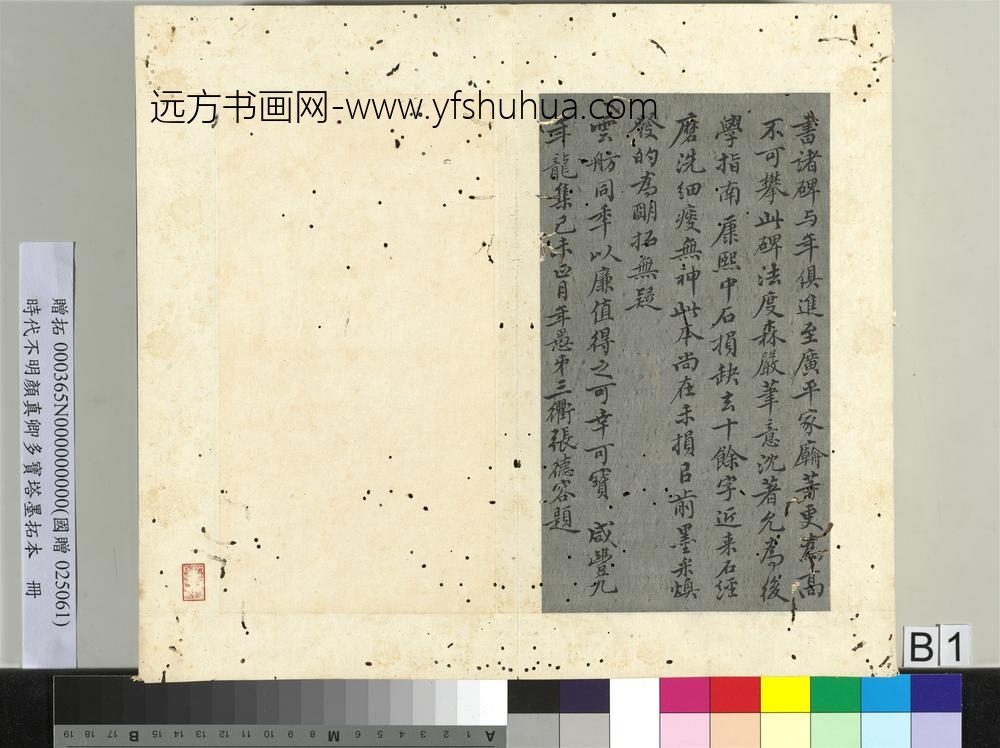 远方书画网-www.yfshuhua.com
書諸碑与年俱進至廣平家廟等更為高
不可攀此碑法度森嚴筆意沈著允為後
學指南康熙中石損缺去十餘字近来石經
磨洗細瘦無神此本尚在未損㠯前墨彩煥
發的為明拓無疑
雲舫同年以廉值得之可幸可寶 咸豐九
年龍集己未正月年愚弟三衢張德容題
贈拓 000365N000000000(國贈 025061)
時代不明顏真卿多寶塔墨拓本 冊
B 1
19 18 17 B 16 15 14 13 12 11 10 9 8 M 7 6 5 4 3 2 1 A